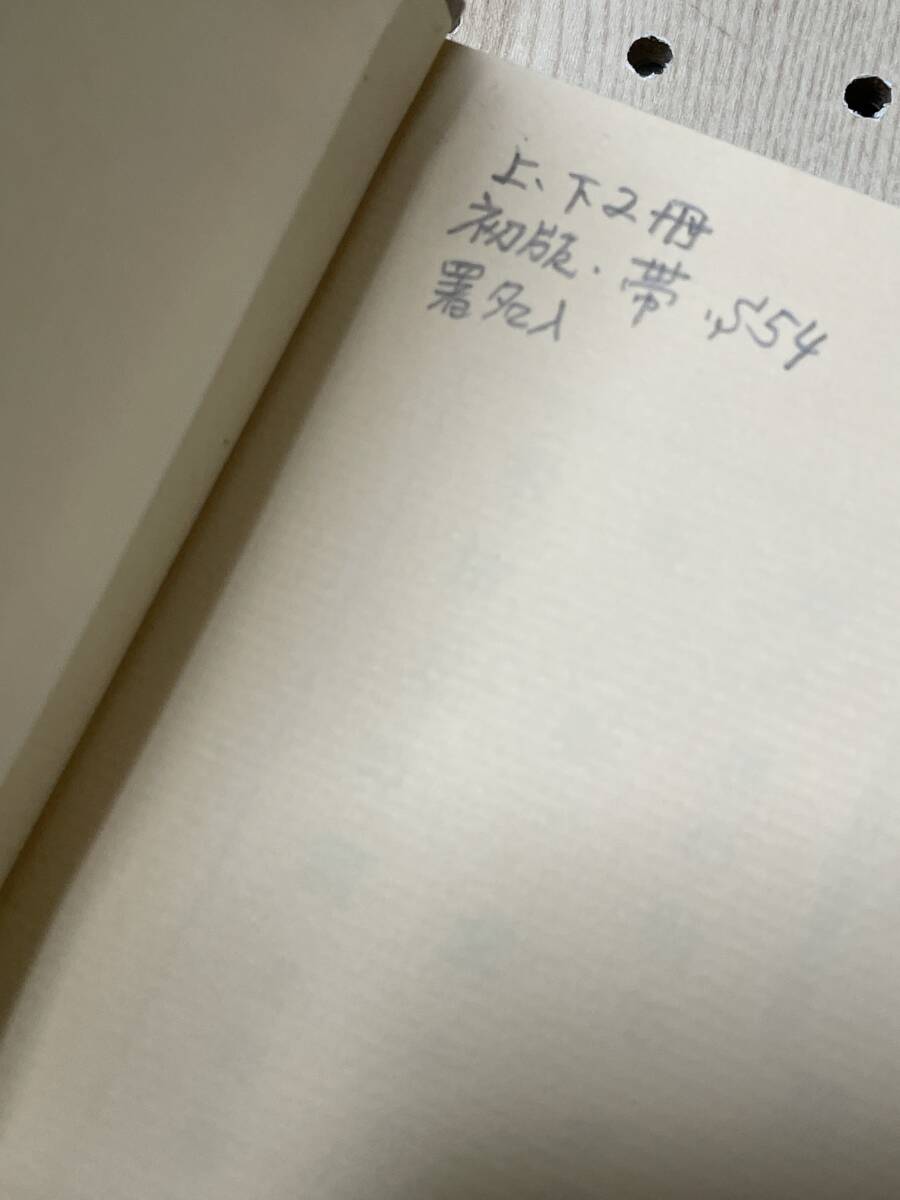 上、下2冊
初版.帯.,S54
署名入